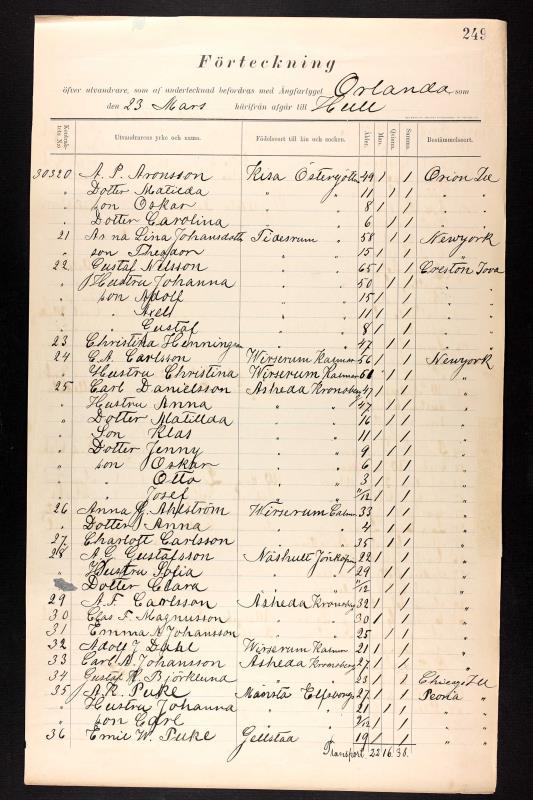 249
Förteckning
öfver utvandrare, som af undertecknad befordras med Ångfartyget Orlanda som
den 23 Mars härifrån afgår till Hull
Kontrakts No Utvandrarens yrke och namn. Födelseort till län och socken. Ålder. Man. Qvinna. Summa. Bestämmelseort.
30320 A. P. Aronsson Kisa Östergötl 49 / / Orion Ill
" Dotter Matilda " " 11 / / " "
" son Oskar " " 8 / / " "
" Dotter Carolina " " 6 / / " "
21 Anna Lina Johansdotter Tidersrum " 58 / / Newyork
" son Theodor " " 15 / / "
22 Gustaf Nilsson " " 65 / / Creston Iova
" Hustru Johanna " " 50 / / " "
" son Adolf " " 15 / / " "
" " Axel " " 11 / / " "
" " Gustaf " " 8 / / " "
23 Christina Henningsson " " 47 / / " "
24 C. A. Carlsson Wirserum Kalmar 56 / / Newyork
" Hustru Christina Wirserum Kalmar / / "
25 Carl Danielsson Asheda Kronoberg 47 / / "
" Hustru Anna " " 47 / / "
" Dotter Matillda " " 16 / / "
" Son Klas " " 11 / / "
" Dotter Jenny " " 9 / / "
" son Oskar " " 6 / / "
" " Otto " " 3 / / "
" " Josef " " 11/12 / / "
26 Anna Ahlström Wirserum Calmar 33 / / "
" Dotter Anna " " 4 / / "
27 Charlott Carlsson " " 35 / / "
28 A. G. Gustafsson Näshult Jönköping 22 / / "
" Hustru Sofia " " 29 / / "
Dotter Clara " " 11/12 / / "
29 A. F. Carlsson Asheda Kronoberg 32 / / "
30 Clas F. Magnusson " " 30 / / "
31 Emma Johansson " " 25 / / "
32 Adolf J Dahl Wirserum Kalmar 21 / / "
33 Carl A. Johansson Asheda Kronoberg 27 / / "
34 Gustaf Björklund " " 23 / / Chicago Ill
35 A. K. Puke Elfsborg 27 / / Peoria "
" Hustru Johanna " " 21 / / " "
" son Carl " " / / " "
36 Emil W. Puke Gellstad " 19 / / " "
Transport 22 16 38.